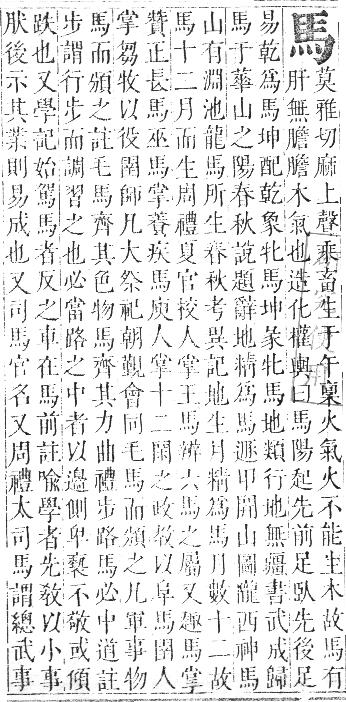 馬
莫雅切麻上聲乘畜生于午稟火氣火不能生木故馬有
肝無膽膽木氣也造化權輿曰馬陽起先前足臥先後足
易乾爲馬坤配乾象牝馬坤彖牝馬地類行地無疆書武成歸
馬于華山之陽春秋說題辭地精爲馬遯甲開山圖隴西神馬
山有淵池龍馬所生春秋考異記地生月精爲馬月數十二故
馬十二月而生周禮夏官校人掌王馬辨六馬之屬又趣馬掌
贊正長馬巫馬掌養疾馬庾人掌十二閑之政教以阜馬圉人
掌芻牧以役圉師凡大祭祀朝覲會同毛馬而頒之凡軍事物
馬而頒之註毛馬齊其色物馬齊其力曲禮步路馬必中道註
步謂行步而調習之也必當路之中者以邊側卑褻不敬或傾
跌也又學記始駕馬者反之車在馬前註喩學者先敎以小事
肰後示其業則易成也又司馬官名又周禮太司馬謂總武事